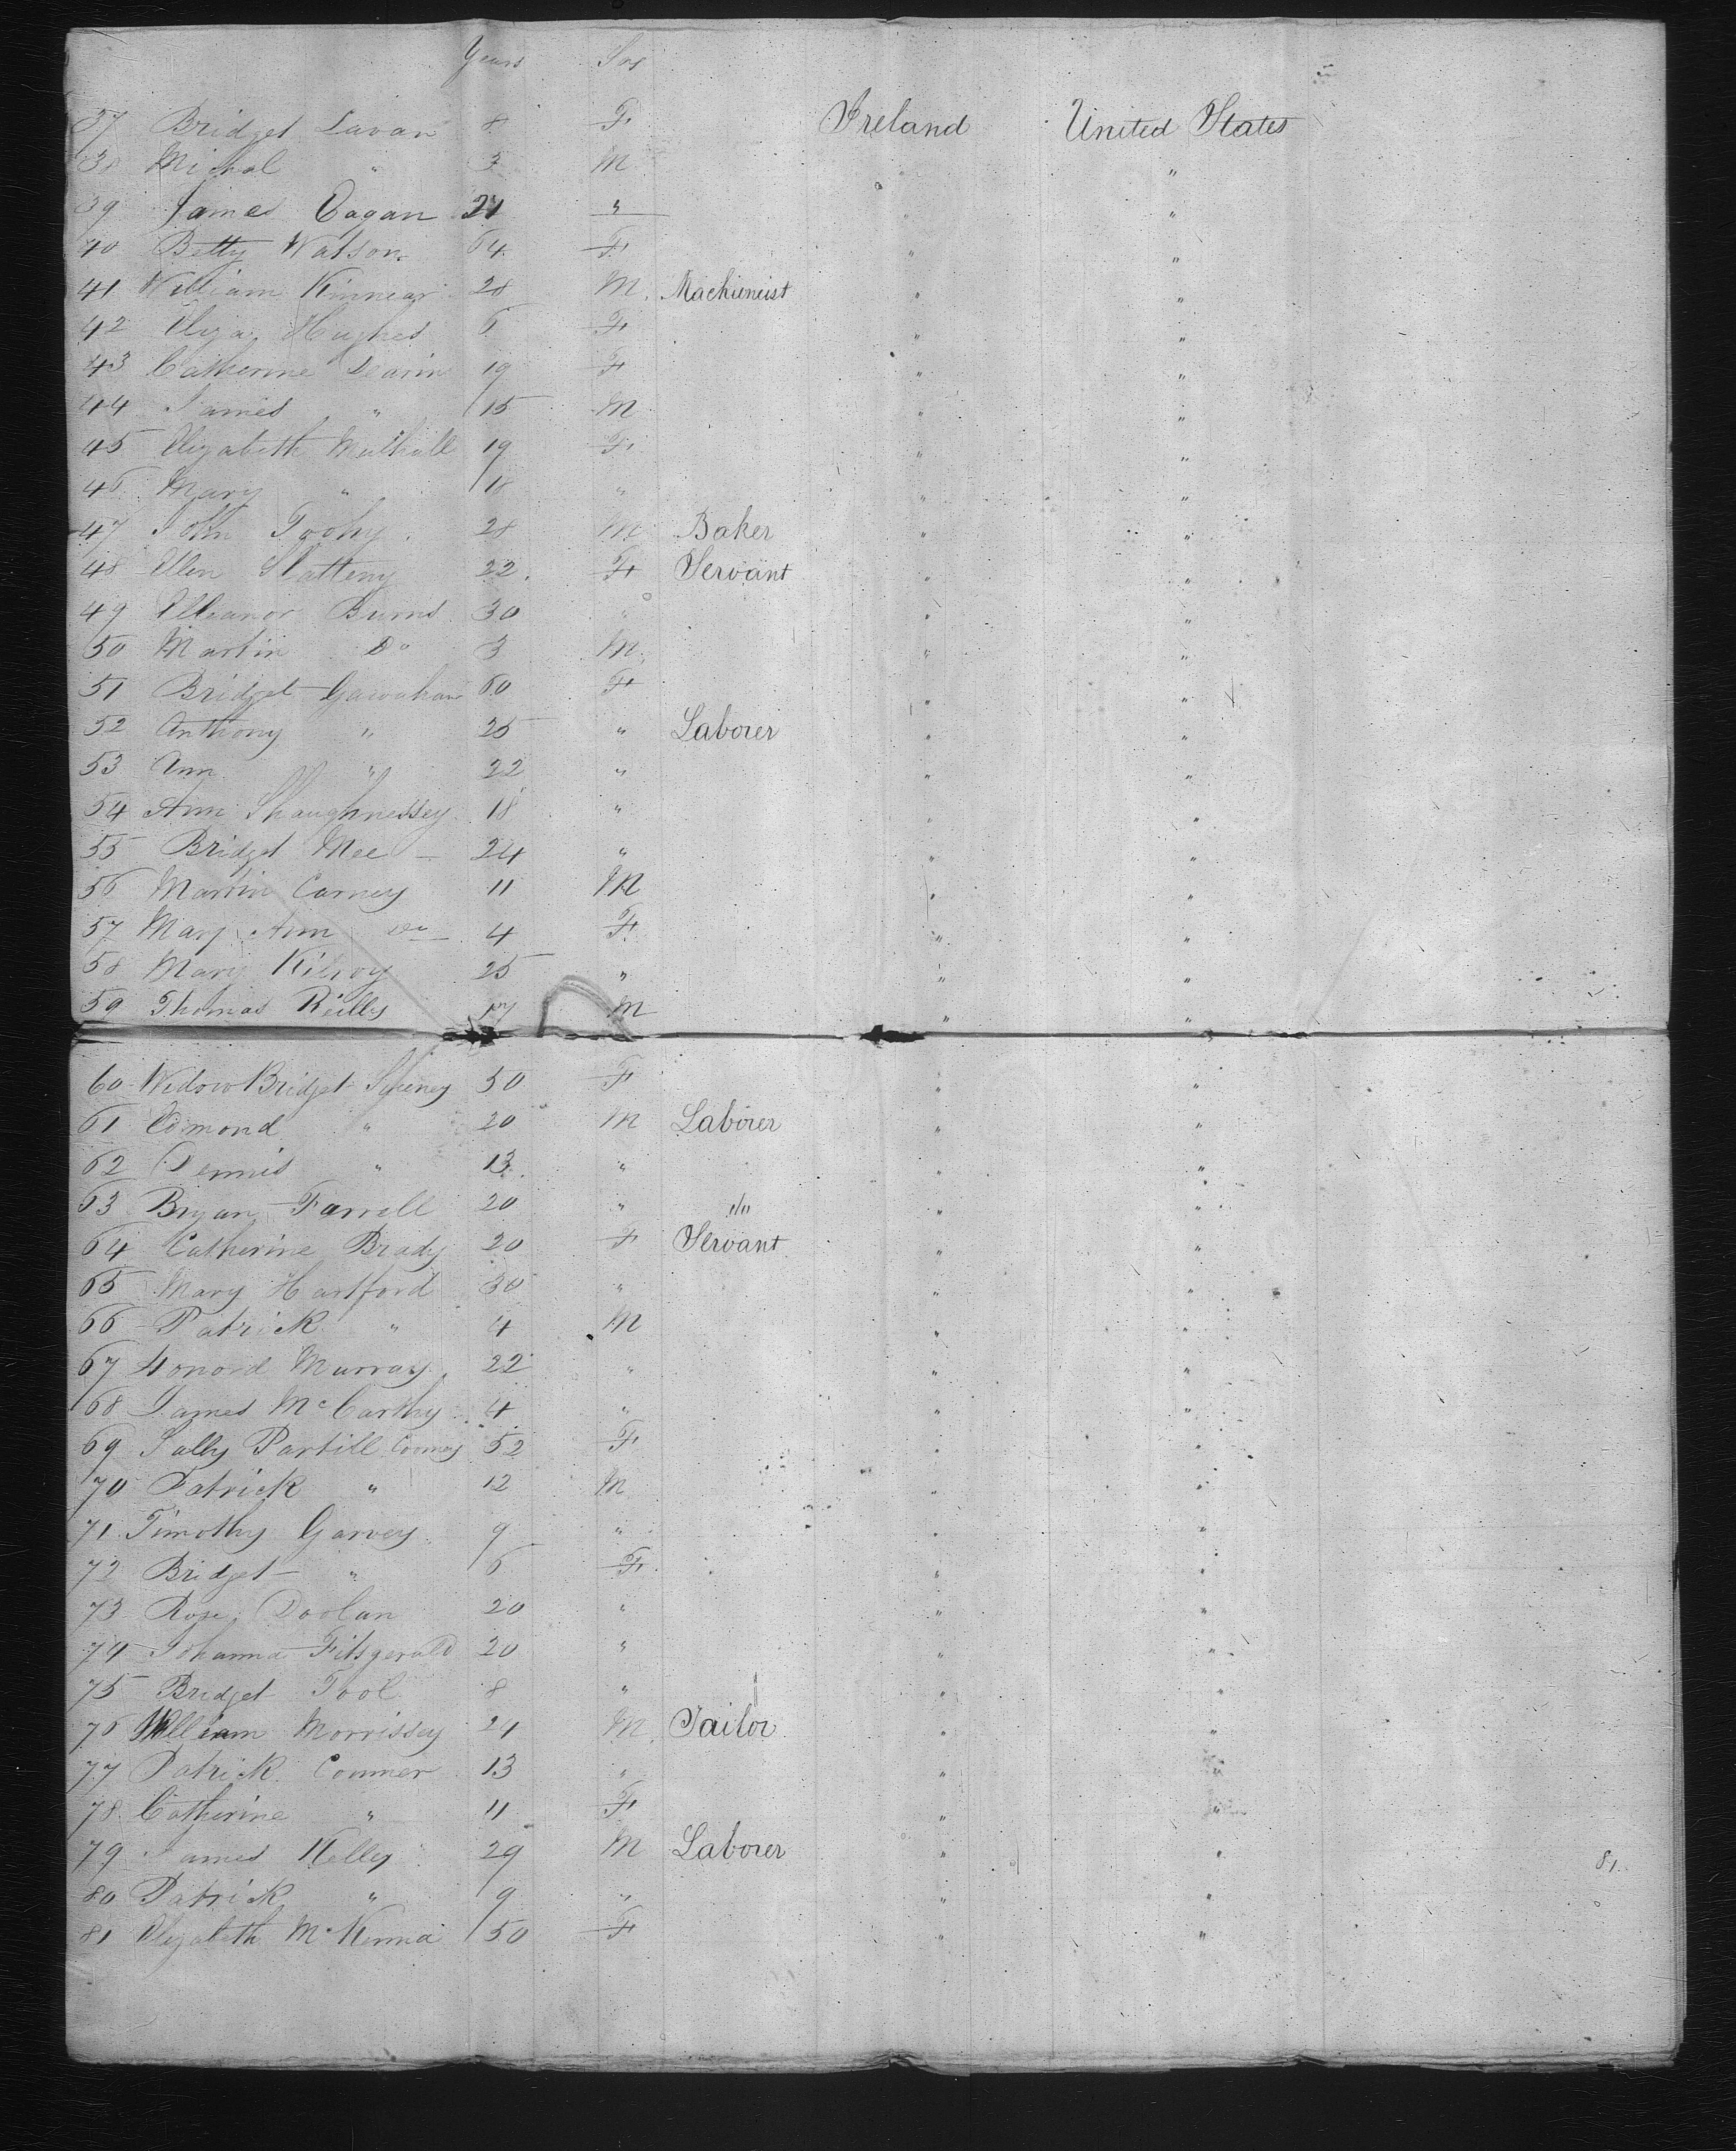 Years Sex
37 Bridget Lavan 8 F Ireland United States
38 Michal " 3 M " "
39 James Eagan 21 " " "
40 Betty Watson 64 F " "
41 William Kinnear 28 M. Machieneist " "
42 Eliza Hughes 6 F " "
43 Catherine Dearin 19 F " "
44 James " 15 M " "
45 Elizabeth Mulhall 19 F " "
46 Mary " 18 " " "
47 John Toohy 28 M Baker " "
48 Ellen Slattery 22 F Servant " "
49 Elleanor Burns 30 " " "
50 Martin Do 3 M " "
51 Bridget Gavahan 60 F " "
52 Anthony " 25 " Laborer " "
53 Ann " 22 " " "
54 Ann Shaughnessey 18 " " "
55 Bridget Mee 24 " " "
56 Martin Carney 11 M " "
57 Mary Ann Do 4 F " "
58 Mary Kilroy 25 " " "
59 Thomas Reilly 17 M " "
60 Widow Bridget 50 F " "
61 Edmond " 20 M Laborer " "
62 Dennis " 13 " " "
63 Bryan Farrell 20 " " " "
64 Catherine Brady 20 F Servant " "
65 Mary Hartford 30 " " "
66 Patrick " 4 M " "
67 Honord Murray 22 " " "
68 James McCarthy 4 " " "
69 Sally Partill Coomey 52 F " "
70 Patrick " 12 M " "
71 Timothy Garvey 9 " " "
72 Bridget " 6 F " "
73 Rose Doolan 20 " " "
74 Johanna Fitsgerald 20 " " "
75 Bridget Tool 8 " " "
76 William Morrissey 24 M Tailor " "
77 Patrick Conner 13 " " "
78 Catherine " 11 F " "
79 James Kelly 29 M Laborer " " 81
80 Patrick " 9 " " "
81 Elizabeth McKenna 50 F " "